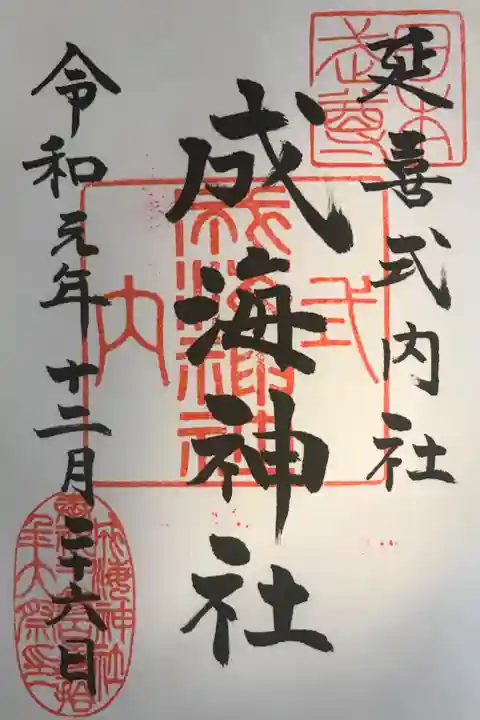 延喜式内社
成海神社
令和元年十二月二十六日
式
内
成海神社